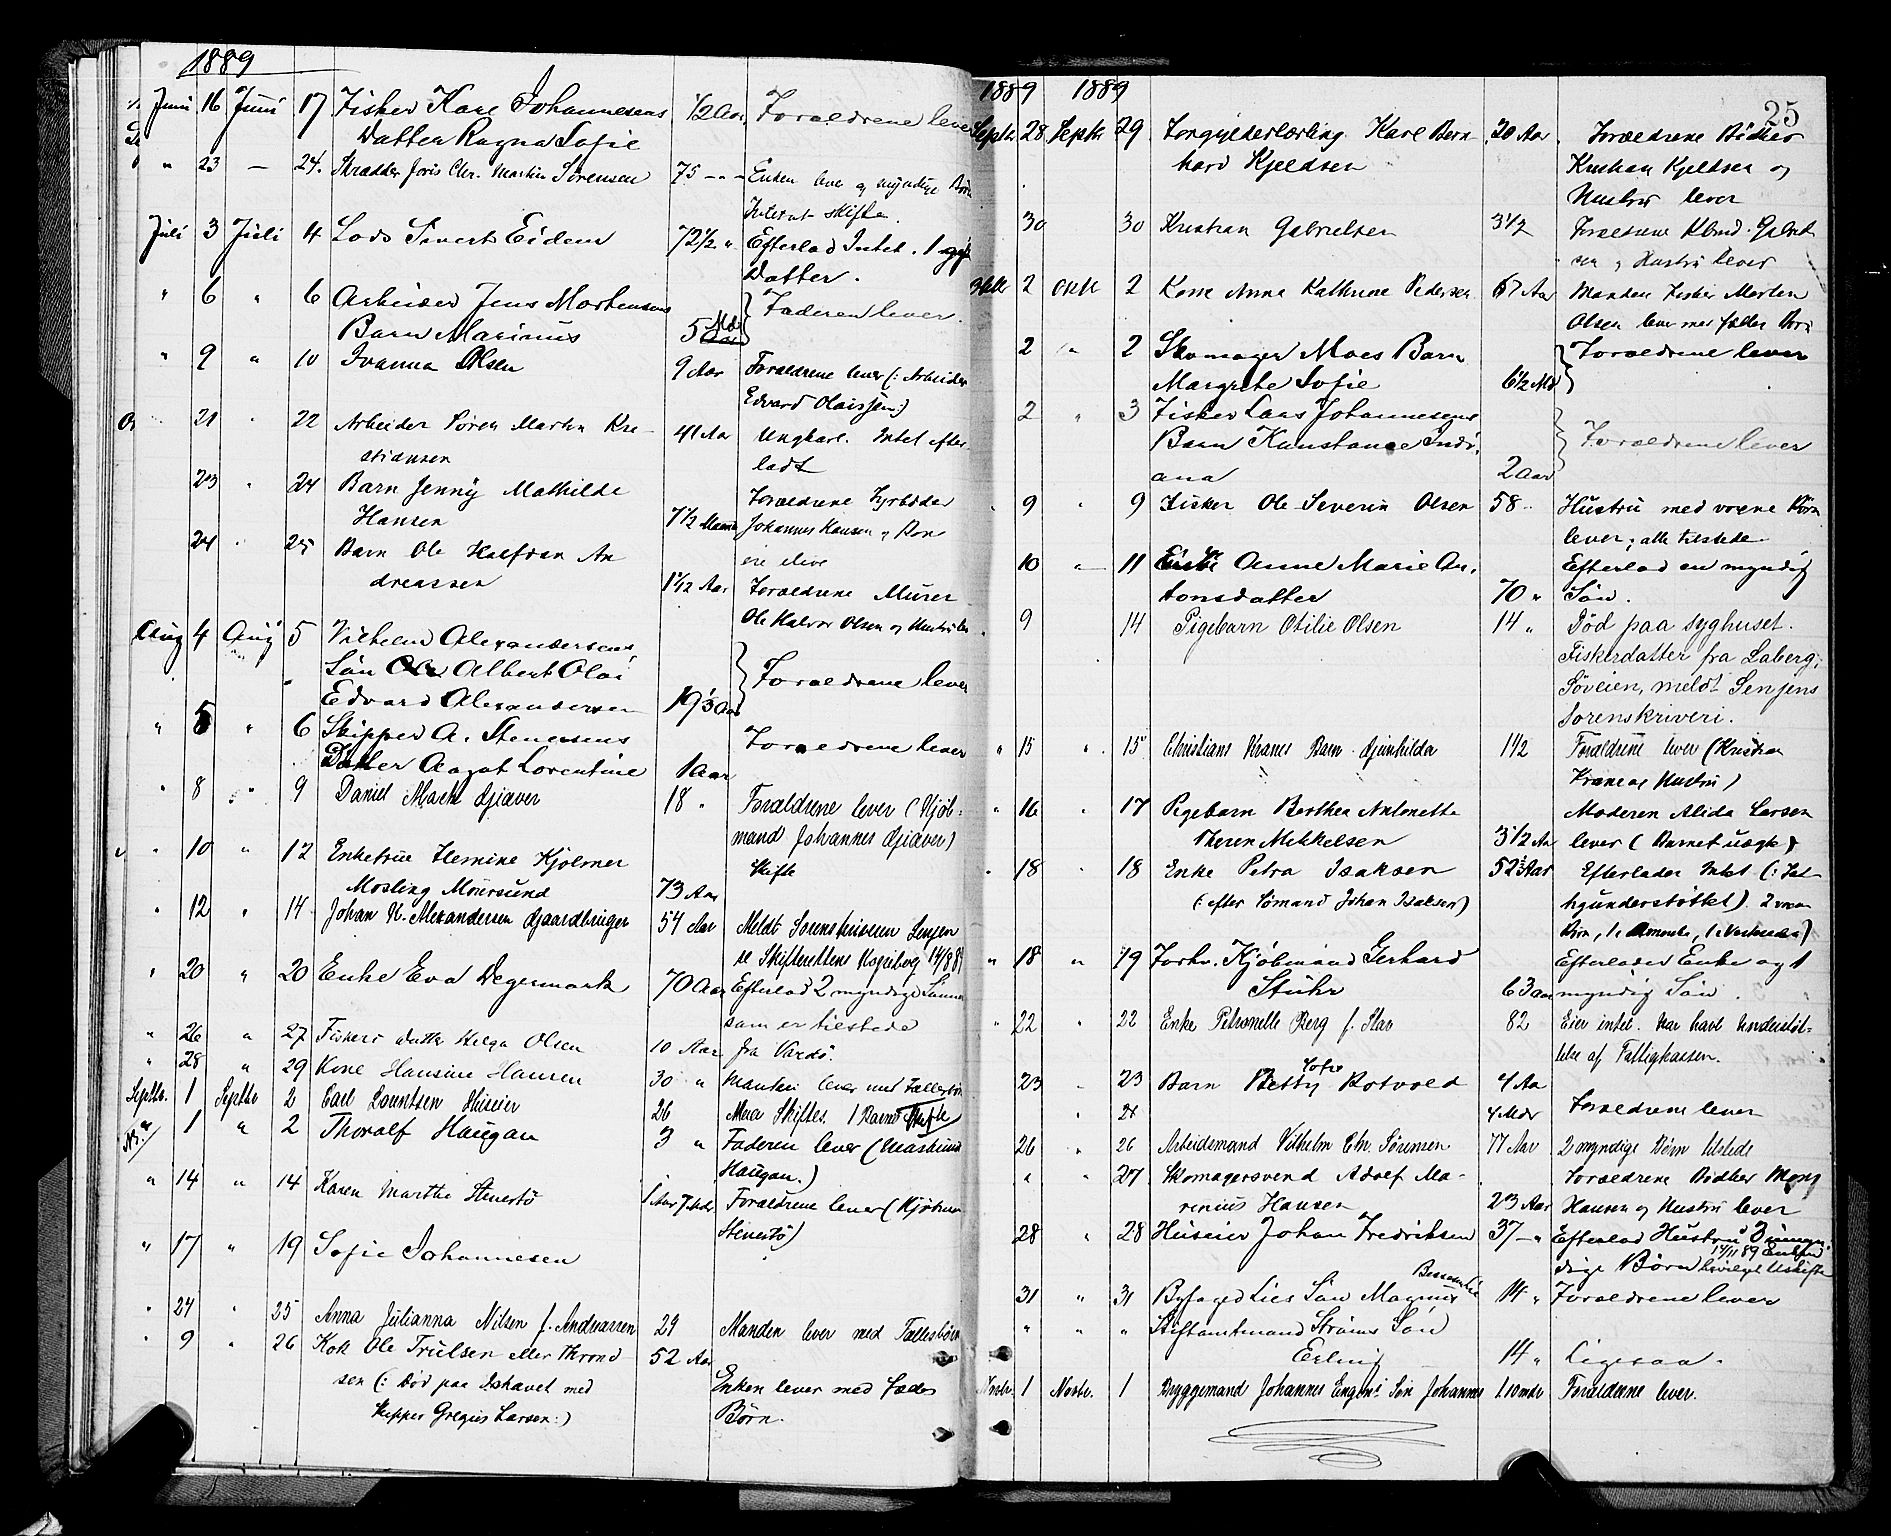 1889
Juni 16 Juni 17 Fisker Karl Johannesens 1/2 Aar. Forældrene lever
Datter Ragna Sofie
" 23 — 24. Skrædder Joris Chr. Martin Sørensen 75 - - - Enken lever og myndige Børn
Intet at skifte.
Juli 3 Juli 4 Lods Sivert Eidem 72 1/2 " Efterlod Intet. 1 gift
Datter.
" 6 " 6 Arbeider Jens Mortensens Faderen lever.
Barn Marinus 5 Mdr
" 9 " 10 Ivanna Olsen 9 Aar Forældrene lever (: Arbeider
Edvard Olaissen:)
21 " 22 Arbeider Søren Martin Kri-
stiansen 41 Aar Ungkarl. Intet efter-
ladt
23 " 24 Barn Jenny Mathilde
Hansen 7 1/2 Maaned Forældrene Fyrbøder
Johannes Hansen og Kone
ere ilive
24 " 25 Barn Ole Halfdan An
dreassen 1 1/12 Aar Forældrene Murer
Ole Halvor Olsen og Hustru lev
Aug 4 Aug 5 Vilhelm Alexandersens
Søn Albert Olai Forældrene lever
Edvard Alexandersen
" 5 " 6 Skipper A. Stenersens Forældrene lever
Datter Aagot Lorentine 1 Aar
" 8 " 9 Daniel Mack Giæver 18 " Forældrene lever (Kjøb-
mand Johannes Giæver)
Skifte
" 10 " 12 Enkefrue Hemine Kjølmer
Mosling Moursund 73 Aar
" 12 " 14 Johan H. Alexandersen Gjaardbruger 54 Aar Meldt Sorenskriveren Senjen
se Skifterettens Kopibog 14/8 89
" 20 " 20 Enke Eva Degermark 70 Aar Efterlod 2 myndige Sønner
som er tilstede
" 26 " 27 Fiskers Datter Helga Olsen 10 Aar fra Vardø.
" 28 " 29 Kone Hansine Hansen 30 " Manden lever med Fællesbørn
Septbr. 1 Septbr 2 Carl Lauritsen Huseier 26 Maa Skiftes. 1 Barn Skifte
" 1 " 2 Thoralf Haugan 3 " Faderen lever (Maskinist
Haugan.)
" 14 " 14 Karen Marthe Stenersø 1 Aar 7 Mdr. Forældrene lever (Kjøbm
Stenersø)
" 17 " 19 Sofie Johannesen
" 24 " 25 Anna Julianna Nilsen f. Andreassen 29 Manden lever med Fællesbørn
" 9 " 26 Kok Ole Trulsen eller Thrond-
sen (: død paa Ishavet med 52 Aar Enken lever med Fælles
Skipper Gregius Larsen:) Børn.
1889 1889 25
Septbr 28 Septbr 29 Forgylderlærling Karl Bern 20 Aar. Forældrene Bødker
hard Kjeldsen Kristian Kjeldsen og
Hustru lever
30 30 Kristian Gabrielsen 3 1/2 Forældrene Gabriel
sen og Hustru lever
Oktb 2 Oktb 2 Kone Anna Kathrine Pedersen 67 Aar Manden Fisker Morten
Olsen lever med fælles Børn
2 " 2 Skomager Moes Barn Forældrene lever
Margrethe Sofie 6 1/2 Md
2 " 3 Fisker Lars Johannesens
Barn Kunstance Indi, Forældrene lever
ana 2 Aar
9 " 9 Fisker Ole Severin Olsen 58 " Hustru med voxne Børn
lever; alle tilstede
10 " 11 Enke Anne Marie An, Efterlod en myndig
tonsdatter 70 " Søn.
9 14 Pigebarn Otilie Olsen 14 " Død paa Syghuset.
Fiskerdatter fra Laberg,
Søveien, meldt Senjens
Sorenskriveri.
" 15 " 15 Christians Kranes Barn Gunhilda 1 1/2 Forældrene lever (Kristian
Krane og Hustru)
" 16 " 17 Pigebarn Berthea Antonette Moderen Alida Larsen
Theren Mikkelsen 3 1/2 Aar lever (Barnet uægte)
" 18 18 Enke Petra Isaksen Efterlader Intet (: Fat-
(: efter Sømand Johan Isaksen) tigunderstøttet). 2 voxne
Børn, 1 i Amerika,
" 18 " 19 Forhv. Kjøbmand Gerhard Efterlader Enke og 1
Stuhr 63 Aar myndig Søn.
" 22 " 22 Enke Petronelle Berg f. Star 82 Eier intet. Har havt Understøt-
telse af Fattigkassen.
23 " 23 Barn Betty Sofie Rotvold 4 Aar
" 28 4 Mdr Forældrene lever
26 " 26 Arbeidsmand Vilhelm Chr. Sørensen 77 Aar 2 myndige Børn tilstede
" " 27 Skomagersvend Adolf Ma- Forældrene Bødker Mons
renius Hansen 23 Aar Hansen og Hustru lever
28 " 28 Huseier Johan Fredriksen 37 - " Efterlod Hustru 3 umyn
dige Børn 14/11 89 Enken bevilget Uskifte
31 " 31 Byfoged Lies Søn Magnus 14 " Forældrene lever
" " " Stiftamtmand Strøms Søn
Erling 14 " Ligesaa.
Novbr. 1 Novbr. 1 Byggemand Johannes Engens Søn Johannes 1 10 mdr Forældrene lever.